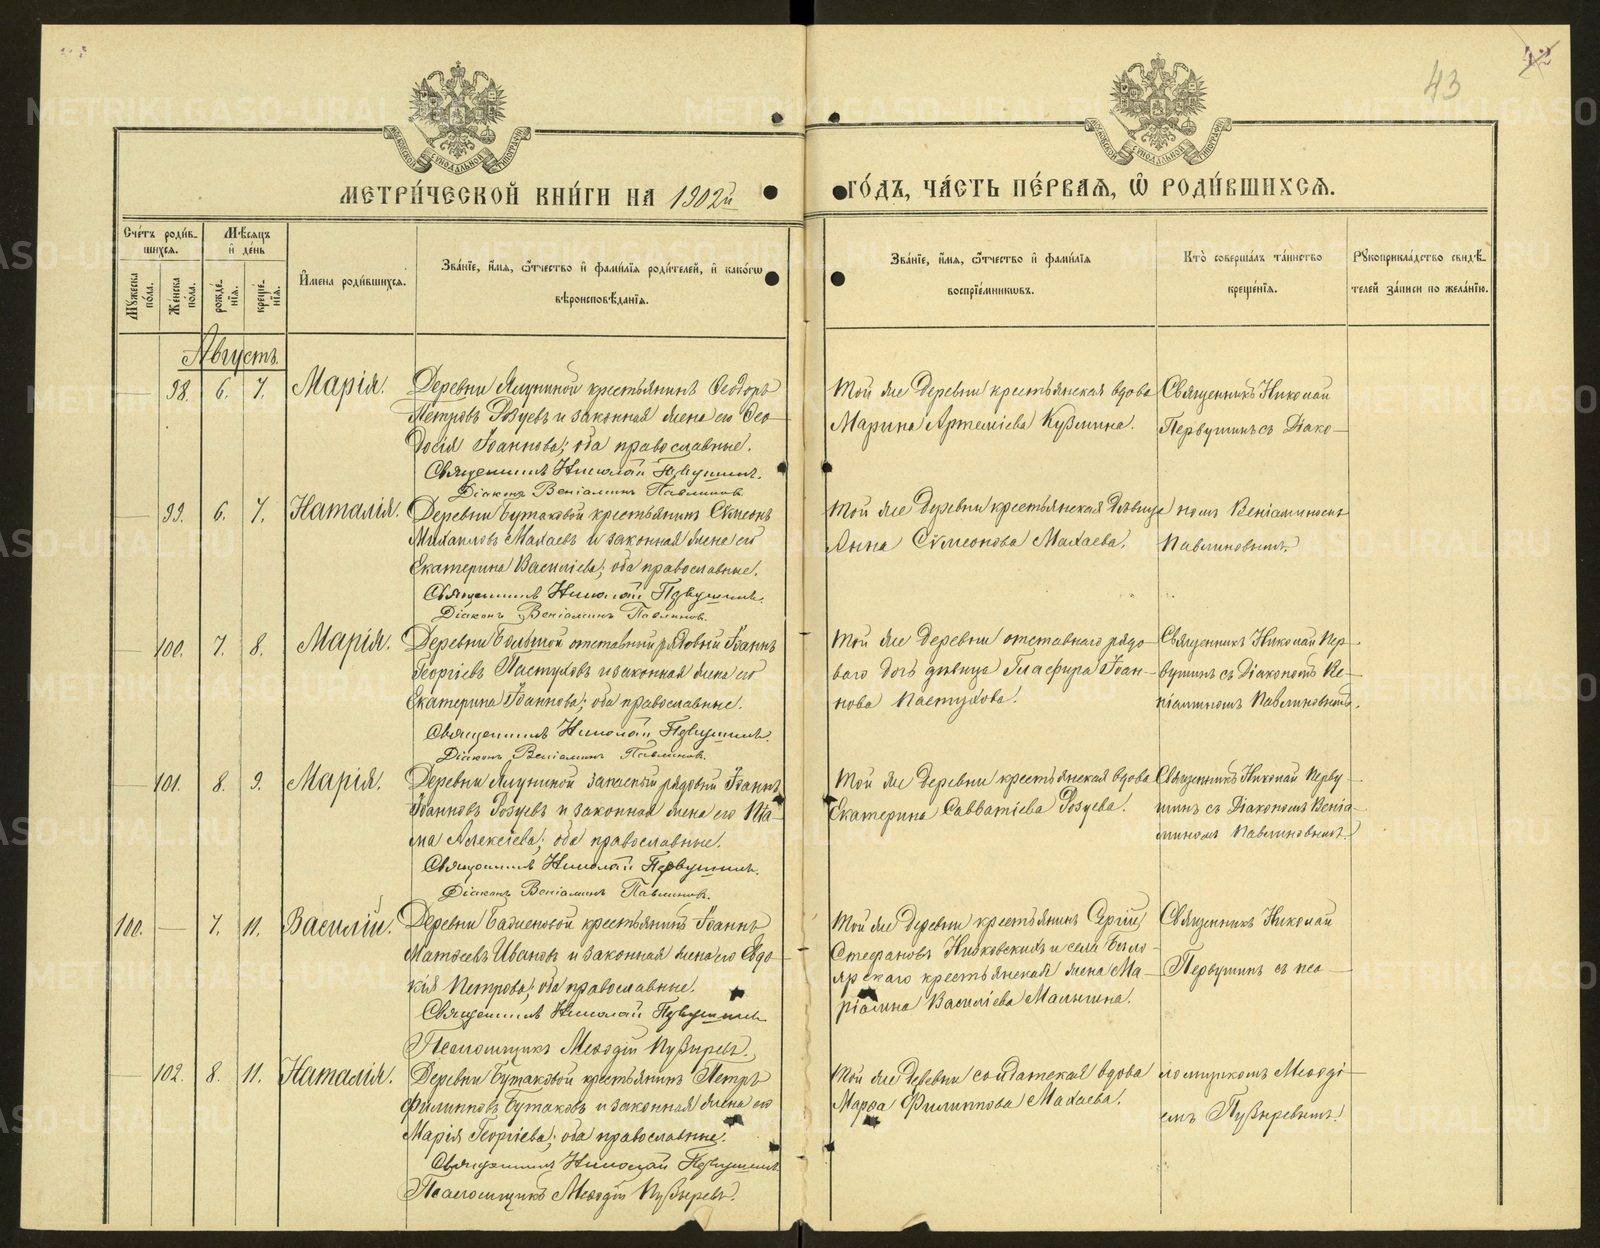 43
42
МЕТРИ́ЧЕСКОЙ КНИ́ГИ НА 1902й
ГО́ДЪ, ЧА́СТЬ ПЕ́РВАЯ, Ѡ РОДИ́ВШИХСЯ.
Сче́тъ роди́в-
шихся.
Мѣ́сяцъ
и де́нь
Му́жеска
по́ла.
Же́нска
по́ла.
рожде́-
нія.
креще́-
нія.
И́мена роди́вшихся.
Зва́ніе, и́мя, ѻ́тчество и фами́лія роди́телей, и како́гѡ
вѣроисповѣ́данія.
Зва́ніе, и́мя, ѻ́тчество и фами́лія
воспріе́мниковъ.
Кто̀ соверша́лъ та́инство
креще́нія.
Рукоприкла́дство свидѣ́-
телей за́писи по жела́нію.
Августъ.
98. 6. 7. Марія.
Деревни Ялуниной крестьянинъ Ѳеодоръ
Петровъ и законная жена его Ѳео-
досія Іоаннова; оба православные.
Священникъ Николай Первушинъ.
Діаконъ Веніаминъ Павлиновъ.
Той же деревни крестьянская вдова
Марина Артеміева Кузмина.
Священникъ Николай
Первушинъ съ Діако-
99. 6. 7. Наталія.
Деревни Бутаковой крестьянинъ Сѵмеонъ
Михаиловъ Махаевъ и законная жена его
Екатерина Василіева; оба православные.
Священникъ Николай Первушинъ.
Діаконъ Веніаминъ Павлиновъ.
Той же деревни крестьянская девица
Анна Сѵмеонова Махаева.
номъ Веніаминомъ
Павлиновымъ.
100. 7. 8. Марія.
Деревни отставной рядовой Іоаннъ
Георгіевъ Пастуховъ и законная жена его
Екатерина Іоаннова; оба православные.
Священникъ Николай Первушинъ.
Діаконъ Веніаминъ Павлиновъ.
Той же деревни отставнаго рядо-
ваго дочь девица Глафира Іоан-
нова Пастухова.
Священникъ Николай Пер-
вушинъ съ Діакономъ Ве-
ніаминомъ Павлиновымъ.
101. 8. 9. Марія.
Деревни Ялуниной запасный рядовой Іоаннъ
Іоанновъ и законная жена его
Алексіева; оба православные.
Священникъ Николай Первушинъ.
Діаконъ Веніаминъ Павлиновъ.
Той же деревни крестьянская вдова
Екатерина Савватіева
Священникъ Николай Перву-
шинъ съ Діакономъ Веніа-
миномъ Павлиновымъ.
100. 7. 11. Василій.
Деревни крестьянинъ Іоаннъ
Матѳеевъ Ивановъ и законная жена его Евдо-
кія Петрова; оба православные.
Священникъ Николай Первушинъ
Псаломщикъ Меѳодій Пузыревъ.
Той же деревни крестьянинъ Сергій
Стефановъ и села Бѣло-
ярскаго крестьянская жена Ма-
ріамна Василіева Малыгина.
Священникъ Николай
Первушинъ съ пса-
102. 8. 11. Наталія.
Деревни Бутаковой крестьянинъ Петръ
Филипповъ Бутаковъ и законная жена его
Марія Георгіева; оба православные.
Священникъ Николай Первушинъ
Псаломщикъ Меѳодій Пузыревъ.
Той же деревни солдатская вдова
Марѳа Филиппова Махаева.
ломщикомъ Меѳоді-
емъ Пузыревымъ.